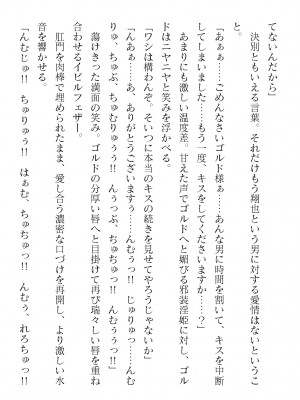 てないんだから」
　決別ともいえる言葉。それだけもう翔也という男に対する愛情はないというこ
と。
「あぁ……ごめんなさいゴルド様ぁ……あんな男に時間を割いて、キスを中断
してしまいました……もう一度、キスをしてくださいますか……？」
　あまりにも激しい温度差。甘えた声でゴルドへと媚びる邪装淫姫に対し、ゴル
ドはニヤニヤと笑みを浮かべる。
「ワシは構わんぞ。そいつに本当のキスの続きを見せてやろうじゃないか」
「んあぁ……あ、ありがとうございますぅ……んむぅっ!!　じゅりゅっ……んむ
りゅ、ちゅぶ、ちゅむりゅぅぅ!!　んぅっぷ、ちゅぢゅっ!!　んむぅぅっ!!」
　蕩けきった満面の笑み。ゴルドの分厚い唇へと目掛けて再び瑞々しい唇を重ね
合わせるイビルフェザー。
　肛門を肉棒で埋められたまま、愛し合う濃密な口づけを再開し、より激しい水
音を響かせる。
「んむじゅ!!　ちゅりゅぅ!!　はぁむ、ちゅぢゅっ!!　んむぅ、れろちゅっ!!